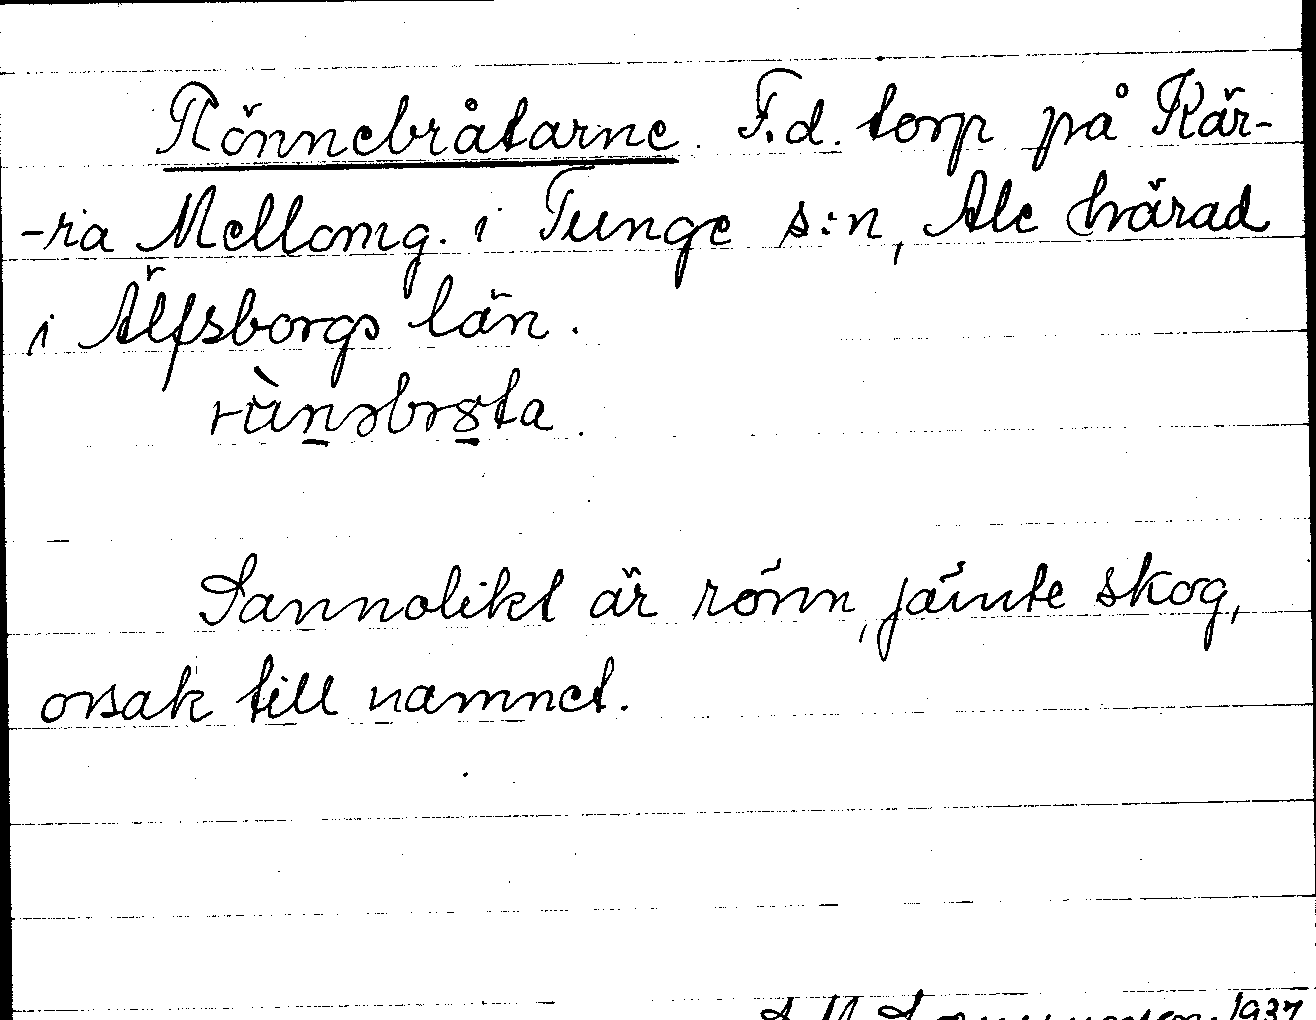 Rönnebråtarne. F.d. torp på Kär-
-ra Mellomg. i Tunge s:n, Ale härad
i Älfsborgs län.
Sannolikt är rönn, jämte skog,
orsak till namnet.
1937